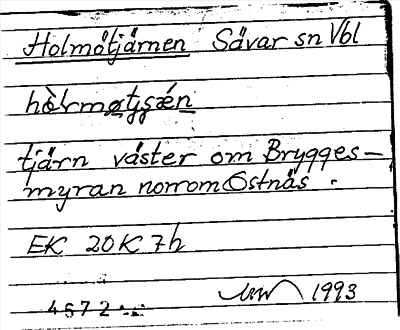 Holmötjärnen Sävar sn Vbl
hòlrmøtjsǽn
tjärn väster om Brygges-
myran norrom Ostnäs.
EK 20K 7h
1993
4672